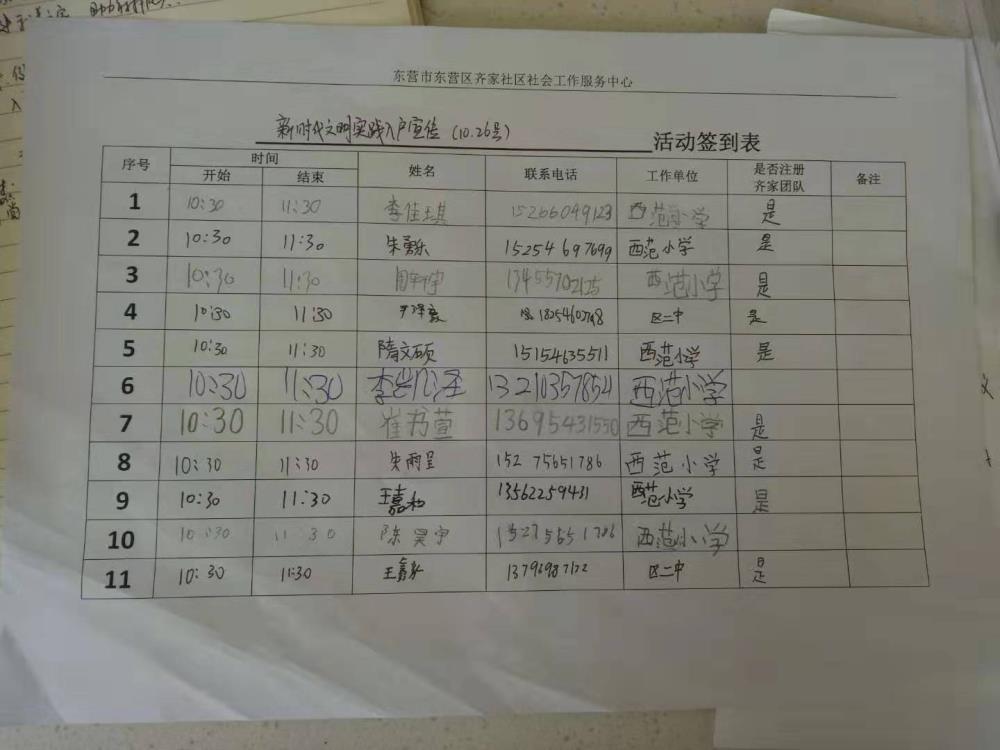 东营市东营区齐家社区社会工作服务中心
新时代文明实践入户宣传（10.26号） 活动签到表
序号 时间 姓名 联系电话 工作单位 是否注册齐家团队 备注
开始 结束
1 10:30 11:30 李佳琪 15266049123 西范小学 是
2 10:30 11:30 朱勇乐 15254697699 西范小学 是
3 10:30 11:30 13455702125 西范小学 是
4 10:30 11:30 区二中 是
5 10:30 11:30 隋文硕 15154635511 西范小学 是
6 10:30 11:30 13210357854 西范小学
7 10:30 11:30 崔芮萱 13695431550 西范小学 是
8 10:30 11:30 朱雨呈 15275651786 西范小学 是
9 10:30 11:30 王嘉和 13562259431 西范小学 是
10 10:30 11:30 陈昊宇 15275651786 西范小学
11 10:30 11:30 区二中 是